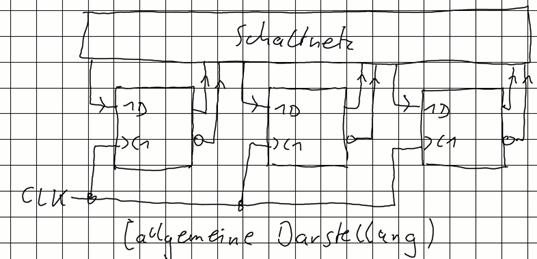 Schaltnetz
1D 1D 1D
C1 C1 C1
CLK
(allgemeine Darstellung)